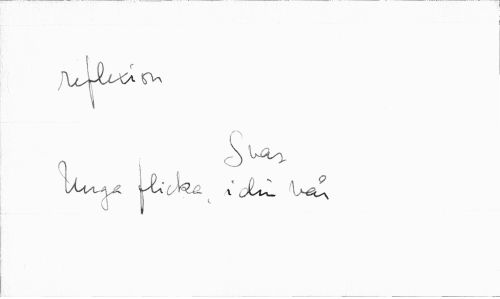 reflexion
Svar
Unga flicka, i din vår